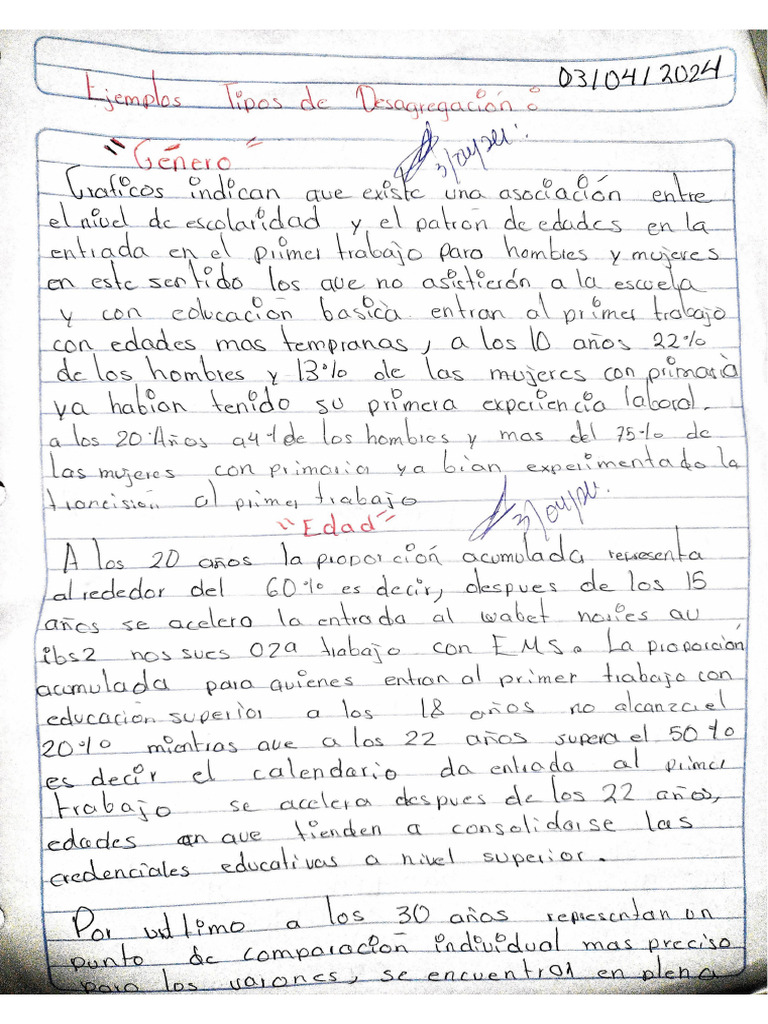 03/04/2024
Ejemplos Tipos de Desagregación:
"Género"
Graficos indican que existe una asociación entre
el nivel de escolaridad y el patron de edades en la
entrada en el primer trabajo para hombres y mujeres
en este sentido los que no asistierón a la escuela
y con educación basica entran al primer trabajo
con edades mas tempranas, a los 10 años 22%
de los hombres y 13% de las mujeres con primaria
ya habian tenido su primera experiencia laboral.
a los 20 Años de los hombres y mas del 75% de
las mujeres con primaria ya bian experimentado la
trancisión al primer trabajo
"Edad"
A los 20 años la proporción acumulada representa
alrededor del 60% es decir, despues de los 15
años se acelero la entrada al
trabajo con EMS. La proporción
acumulada para quienes entran al primer trabajo con
educación superior a los 18 años no alcanza el
20% mientras que a los 22 años supera el 50%
es decir el calendario da entrada al primer
trabajo se acelera despues de los 22 años,
edades en que tienden a consolidarse las
credenciales educativas a nivel superior.
Por ultimo a los 30 años representan un
punto de comparación individual mas preciso
para los varones, se encuentran en plena